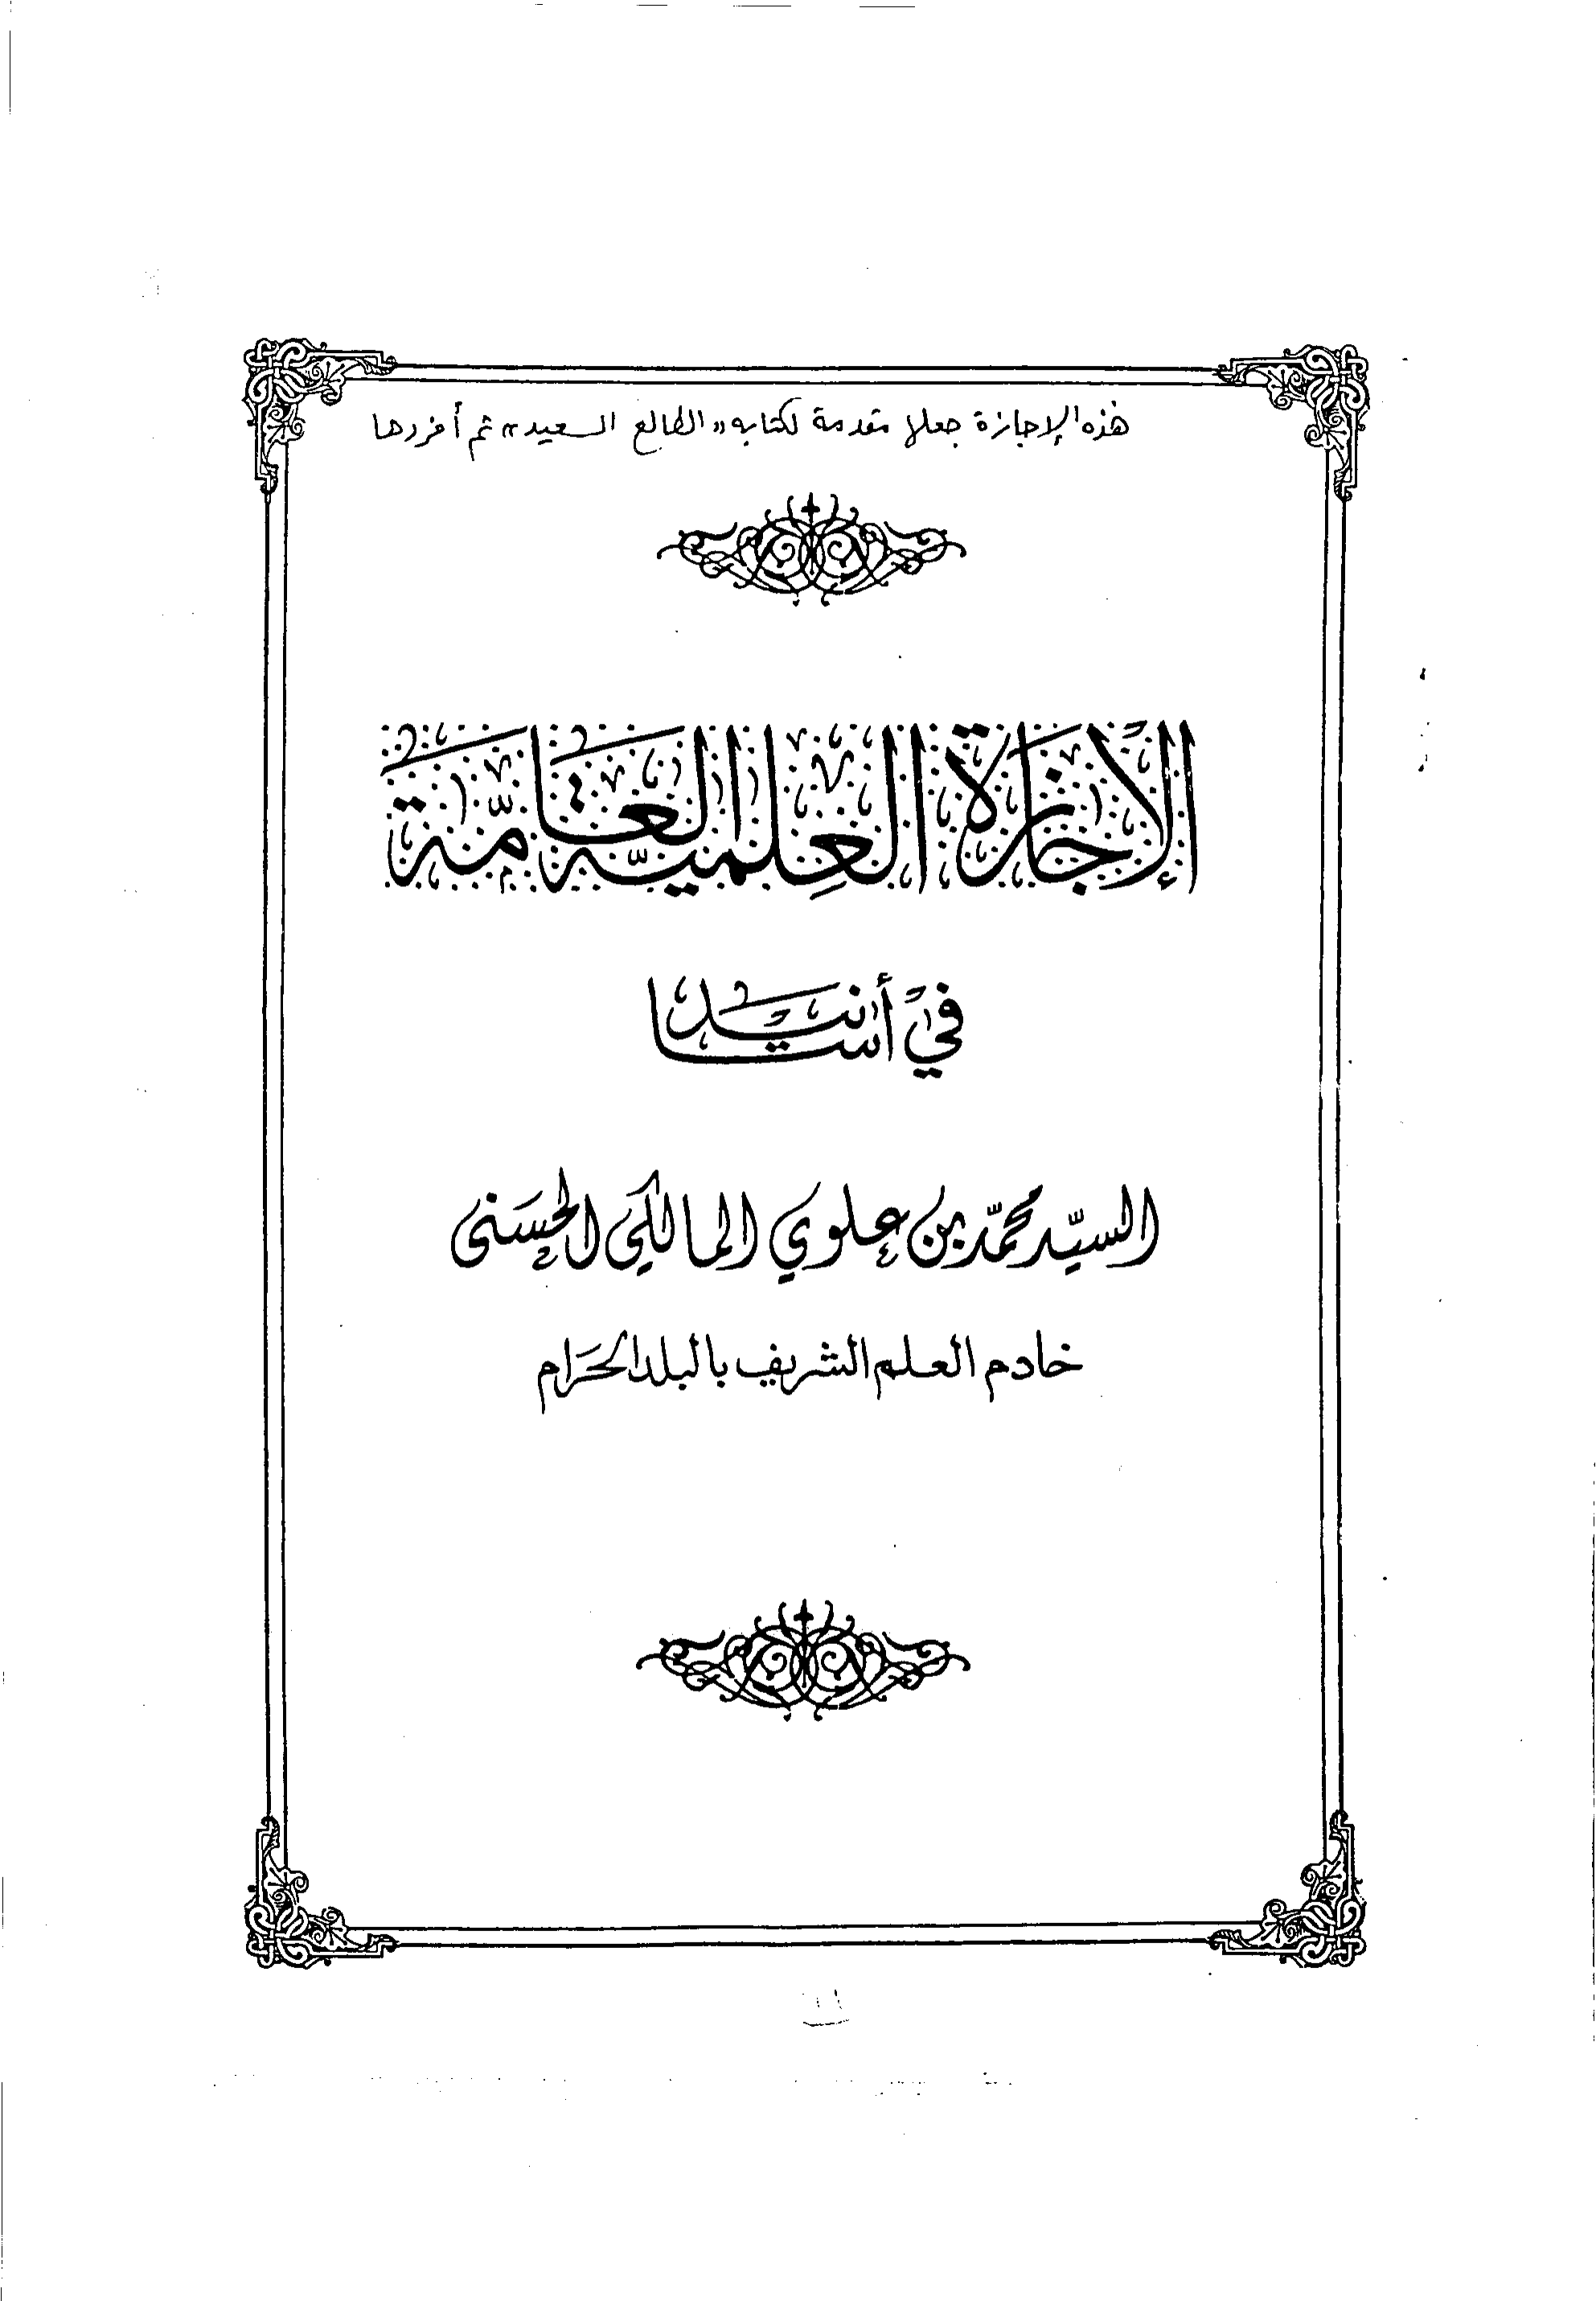 هذه الإجازة جعلها مقدمة لكتابه «الطالع السعيد» ثم أفردها
الإجازة العلمية العامة
في أسانيد
السيد محمد بن علوي المالكي الحسني
خادم العلم الشريف بالبلد الحرام